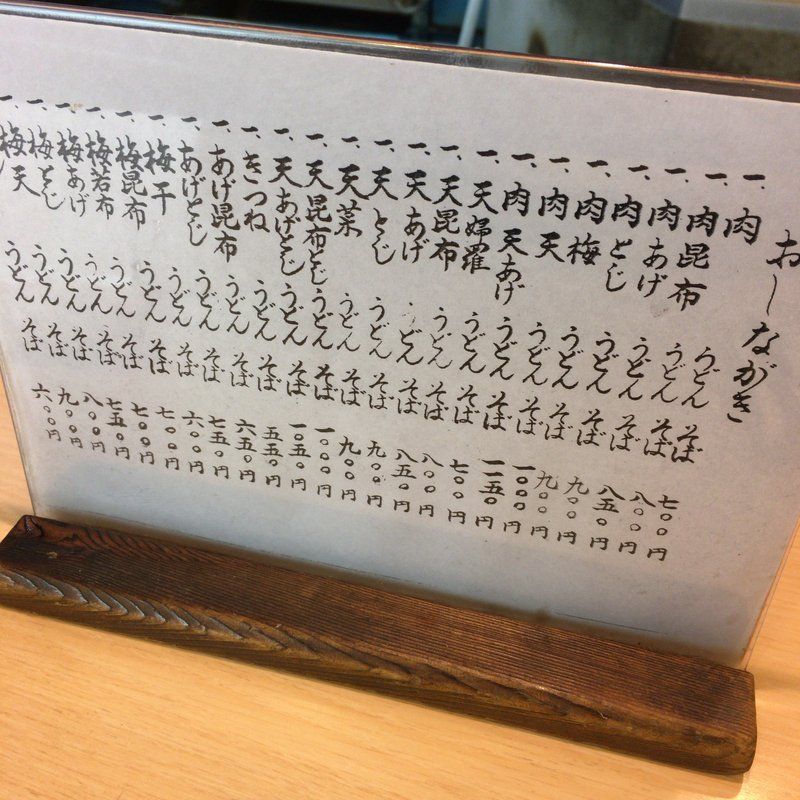 おしながき
一、肉 うどん そば 七〇〇円
一、肉昆布 うどん そば 八〇〇円
一、肉あげ うどん そば 八五〇円
一、肉とじ うどん そば 九〇〇円
一、肉梅 うどん そば 九〇〇円
一、肉天 うどん そば 一〇〇〇円
一、肉天あげ うどん そば 一一五〇円
一、天婦羅 うどん そば 七〇〇円
一、天昆布 うどん そば 八〇〇円
一、天あげ うどん そば 八五〇円
一、天とじ うどん そば 九〇〇円
一、天菜 うどん そば 九〇〇円
一、天昆布とじ うどん そば 一〇〇〇円
一、天あげとじ うどん そば 一〇五〇円
一、きつね うどん そば 五五〇円
一、あげ昆布 うどん そば 六五〇円
一、あげとじ うどん そば 七五〇円
一、梅干 うどん そば 六〇〇円
一、梅昆布 うどん そば 七〇〇円
一、梅若布 うどん そば 七〇〇円
一、梅あげ うどん そば 七五〇円
一、梅とじ うどん そば 八〇〇円
一、梅天 うどん そば 九〇〇円
うどん そば 六〇〇円